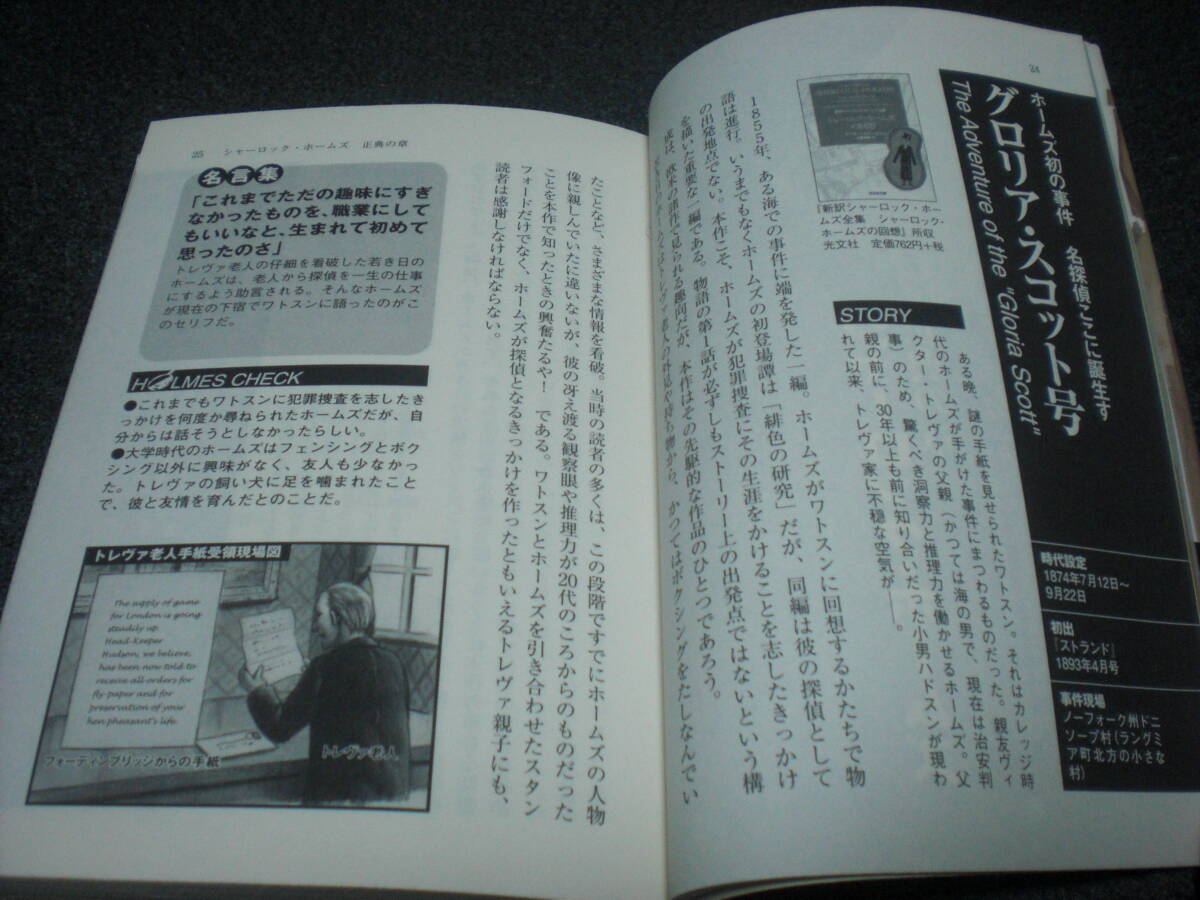 24
ホームズ初の事件 名探偵ここに誕生す
グロリア・スコット号
The Adventure of the "Gloria Scott"
時代設定
1874年7月12日～
9月22日
初出
『ストランド』
1893年4月号
事件現場
ノーフォーク州ドニ
ソープ村(ラングミ
ア町北方の小さな
村)
『新訳シャーロック・ホー
ムズ全集 シャーロック・
ホームズの回想』所収
光文社 定価762円+税
STORY
ある晩、謎の手紙を見せられたワトスン。それはカレッジ時
代のホームズが手がけた事件にまつわるものだった。親友ヴィ
クター・トレヴァの父親(かつては海の男で、現在は治安判
事)のため、驚くべき洞察力と推理力を働かせるホームズ。父
親の前に、30年以上も前に知り合いだった小男ハドスンが現わ
れて以来、トレヴァ家に不穏な空気が――。
1855年、ある海での事件に端を発した一編。ホームズがワトスンに回想するかたちで物
語は進行。いうまでもなくホームズの初登場譚は「緋色の研究」だが、同編は彼の探偵として
の出発地点でない。本作こそ、ホームズが犯罪捜査にその生涯をかけることを志したきっかけ
を描いた重要な一編である。物語の第1話が必ずしもストーリー上の出発点ではないという構
成は、欧米の諸作で見られる趣向だが、本作はその先駆的な作品のひとつであろう。
ホームズはトレヴァ老人の外見や持ち物から、かつてはボクシングをたしなんでい
25 シャーロック・ホームズ 正典の章
たことなど、さまざまな情報を看破。当時の読者の多くは、この段階ですでにホームズの人物
像に親しんでいたに違いないが、彼の冴え渡る観察眼や推理力が20代のころからのものだった
ことを本作で知ったときの興奮たるや! である。ワトスンとホームズを引き合わせたスタン
フォードだけでなく、ホームズが探偵となるきっかけを作ったともいえるトレヴァ親子にも、
読者は感謝しなければならない。
名言集
「これまでただの趣味にすぎ
なかったものを、職業にして
もいいなと、生まれて初めて
思ったのさ」
トレヴァ老人の仔細を看破した若き日の
ホームズは、老人から探偵を一生の仕事
にするよう助言される。そんなホームズ
が現在の下宿でワトスンに語ったのがこ
のセリフだ。
HOLMES CHECK
●これまでもワトスンに犯罪捜査を志したき
っかけを何度か尋ねられたホームズだが、自
分からは話そうとしなかったらしい。
●大学時代のホームズはフェンシングとボク
シング以外に興味がなく、友人も少なかっ
た。トレヴァの飼い犬に足を噛まれたこと
で、彼と友情を育んだとのことだ。
トレヴァ老人手紙受領現場図
The supply of game
for London is going
steadily up.
Head-Keeper
Hudson, we believe,
has been now told to
receive all orders for
fly-paper and for
preservation of your
hen pheasant's life.
フォーディンブリッジからの手紙
トレヴァ老人